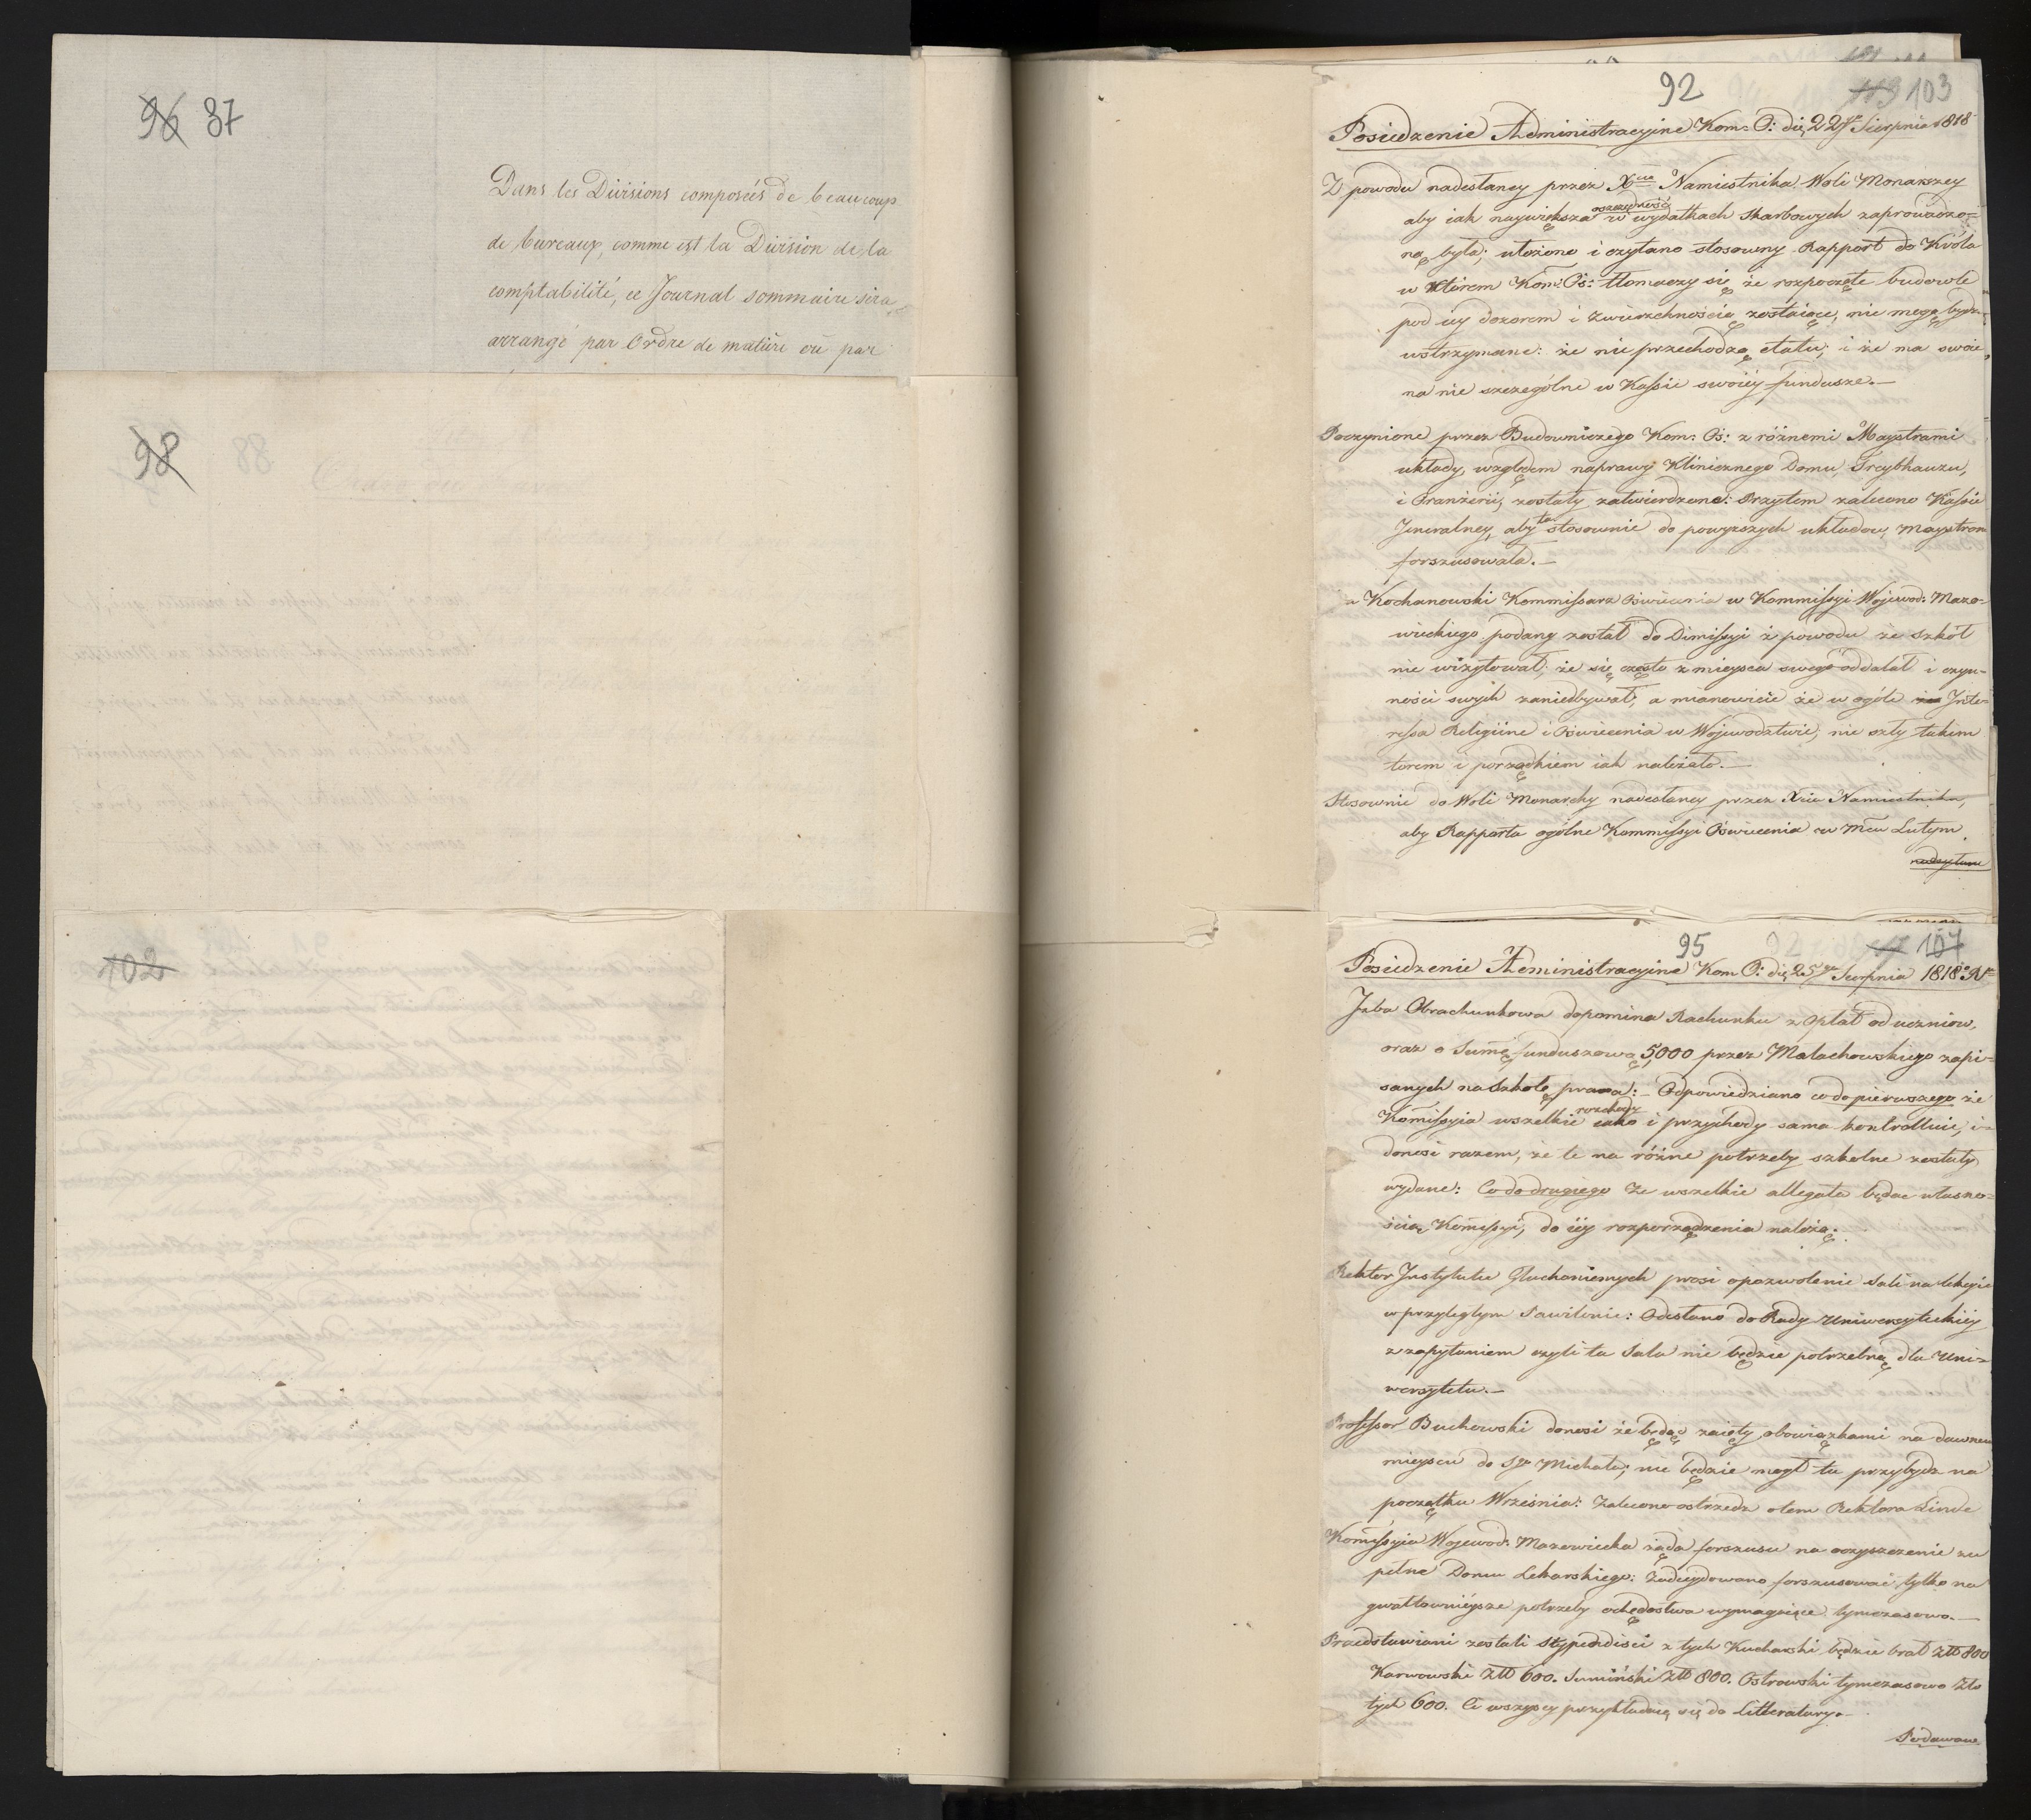 96 87
Dans les Divisions composés de beaucoup
de bureaux, comme est la Division de la
comptabilité, ce Journal sommaire sera
arrangé par Ordre de matière ou par
98
102
92
113 103
Posiedzenie Administracyjne Kom: O: dię 22go Sierpnia 1818
Z powodu nadesłaney przez Xcia Namiestnika Woli Monarszey
aby iak naywiększa oszczędność w wydatkach skarbowych zaprowadzo=
ną była; ułożono i czytano stosowny Rapport do Króla
w którem Kom: Oś: tłomaczy się że rozpoczęte budowle
pod iey dozorem i zwierzchnością zostaiące, nie mogą bydź
wstrzymane: że nie przechodzą etatu; i że ma swoie
na nie szczególne w Kassie swoiéy fundusze.—
Poczynione przez Budowniczego Kom: Oś: z różnemi Maystrami
układy, względem naprawy Klinicznego Domu, Treybhauzu,
i Oranżerii, zostały zatwierdzone: Przytem zalecono Kassie
Jeneralney, aby ta stosownie do powyższych układow, Maystrom
forszusowała.—
Kochanowski Kommissarz Oświecenia w Kommissyi Wojewod: Mazo=
wieckiego podany został do Dimissyi z powodu że szkół
nie wizytował, że się często z mieysca swego oddalał i czyn=
ności swych zaniedbywał; a mianowicie że w ogóle Inte=
ressa Religiine i Oświecenia w Wojewodztwie, nie szły takim
torem i porządkiem iak należało.—
Stosownie do Woli Monarchy nadesłaney przez Xcia Namiestnika,
aby Rapporta ogólne Kommissyi Oświecenia w Mcu Lutym
nadsyłane
95
107
Posiedzenie Administracyjne Kom O: dię 25go Sierpnia 1818 R.
Izba Obrachunkowa dopomina Rachunku z Opłat od uczniow,
oraz o Summę funduszową 5,000 przez Małachowskiego zapi=
sanych na szkołę prawa:— Odpowiedziano co do pierwszego że
Kommissyia wszelkie rozchody iako i przychody sama kontrolluie, i
donosi razem, że te na różne potrzeby szkolne zostały
wydane: Co do drugiego Ze wszelkie allegata będąc własno=
ścią Kommissyi, do iéy rozporządzenia należą.
Rektor Instytutu Głuchoniemych prosi o pozwolenie Sali na lekcyie
w przyległym Pawilonie: Odesłano do Rady Uniwersyteckiéy
z zapytaniem czyli ta Sala nie będzie potrzebną dla Uni=
wersytetu.—
Professor Buchowski donosi że będąc zaięty obowiązkami na dawnem
mieyscu do Sgo Michała; nie będzie mogł tu przybydź na
początku Września: Zalecono ostrzedz o tem Rektora Linde
Kommissyia Wojewod: Mazowiecka żąda forszusu na oczyszczenie zu
pełne Domu Lekarskiego: Zadecydowano forszusować tylko na
gwałtownieysze potrzeby ochędostwa wymagaiące tymczasowo.—
Przedstawiani zostali stypendiści z tych Kucharski będzie brał Złł 800
Karwowski Złł 600. Sumiński Złł 800. Ostrowski tymczasowo Zło
tych 600. Ci wszyscy przykładaią się do Litteratury.—
Podawane